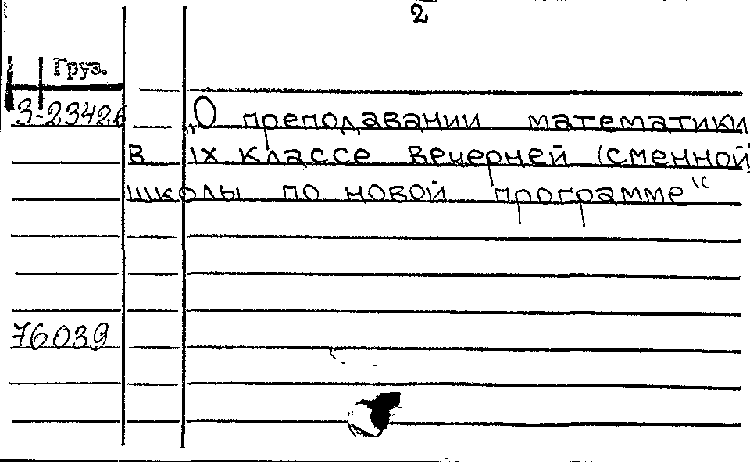 2
Груз.
3-23426
„О преподавании математики
в IX классе вечерней (сменной
школы по новой программе"
76039